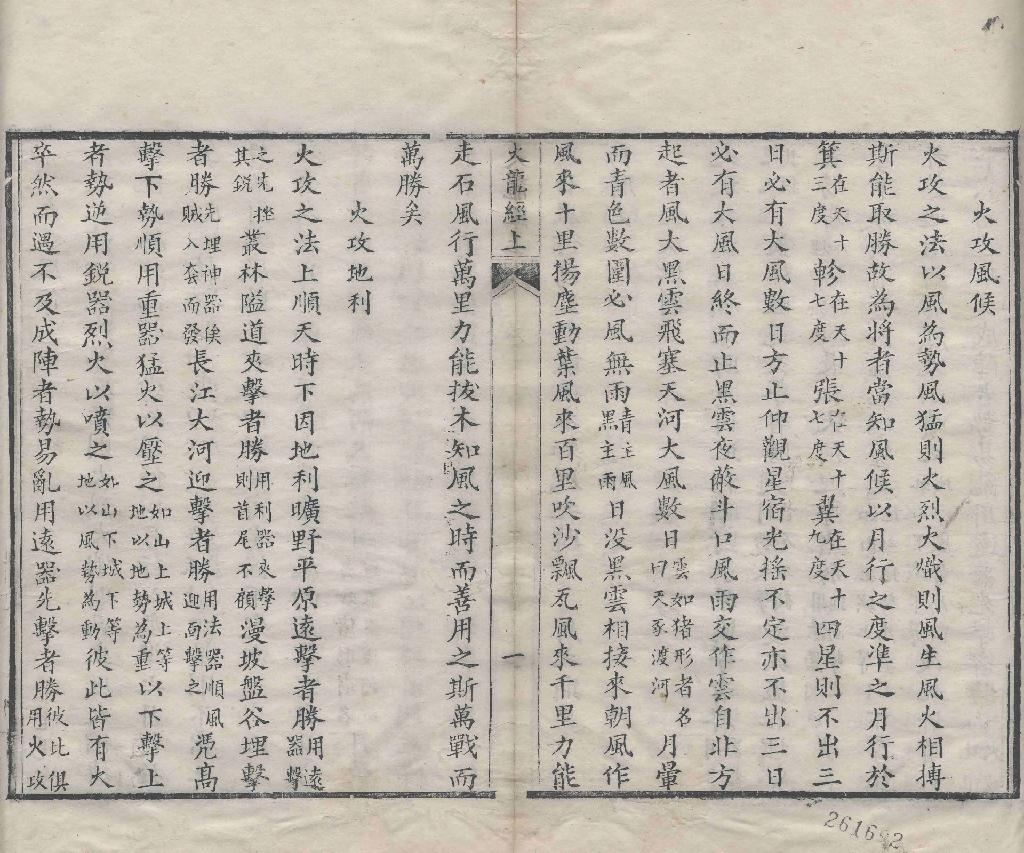 火攻風候
火攻之法以風為勢風猛則火烈火熾則風生風火相搏
斯能取勝故為將者當知風候以月行之度準之月行於
箕在天十三度軫在天十七度張在天十七度翼在天十九度四星則不出三
日必有大風數日方止仰觀星宿光搖不定亦不出三日
必有大風日終而止黑雲夜蔽斗口風雨交作雲自北方
起者風大黑雲飛塞天河大風數日雲如猪形者名曰天豕渡河月暈
而青色數圍必風無雨青主風黑主雨日没黑雲相接來朝風作
風來十里揚塵動葉風來百里吹沙飄瓦風來千里力能
火龍經上
一
走石風行萬里力能拔木知風之時而善用之斯萬戰而
萬勝矣
火攻地利
火攻之法上順天時下因地利曠野平原遠擊者勝用遠器擊
之先挫其銳叢林隘道夾擊者勝用利器夾擊則首尾不顧漫坡盤谷埋擊
者勝先埋神器俟賊入套而發長江大河迎擊者勝用法器順風迎而擊之凴高
擊下勢順用重器猛火以壓之如山上城上等地以地勢為重以下擊上
者勢逆用銳器烈火以噴之如山下城下等地以風勢為動彼此皆有火
卒然而遇不及成陣者勢易亂用遠器先擊者勝彼比俱用火攻
261692